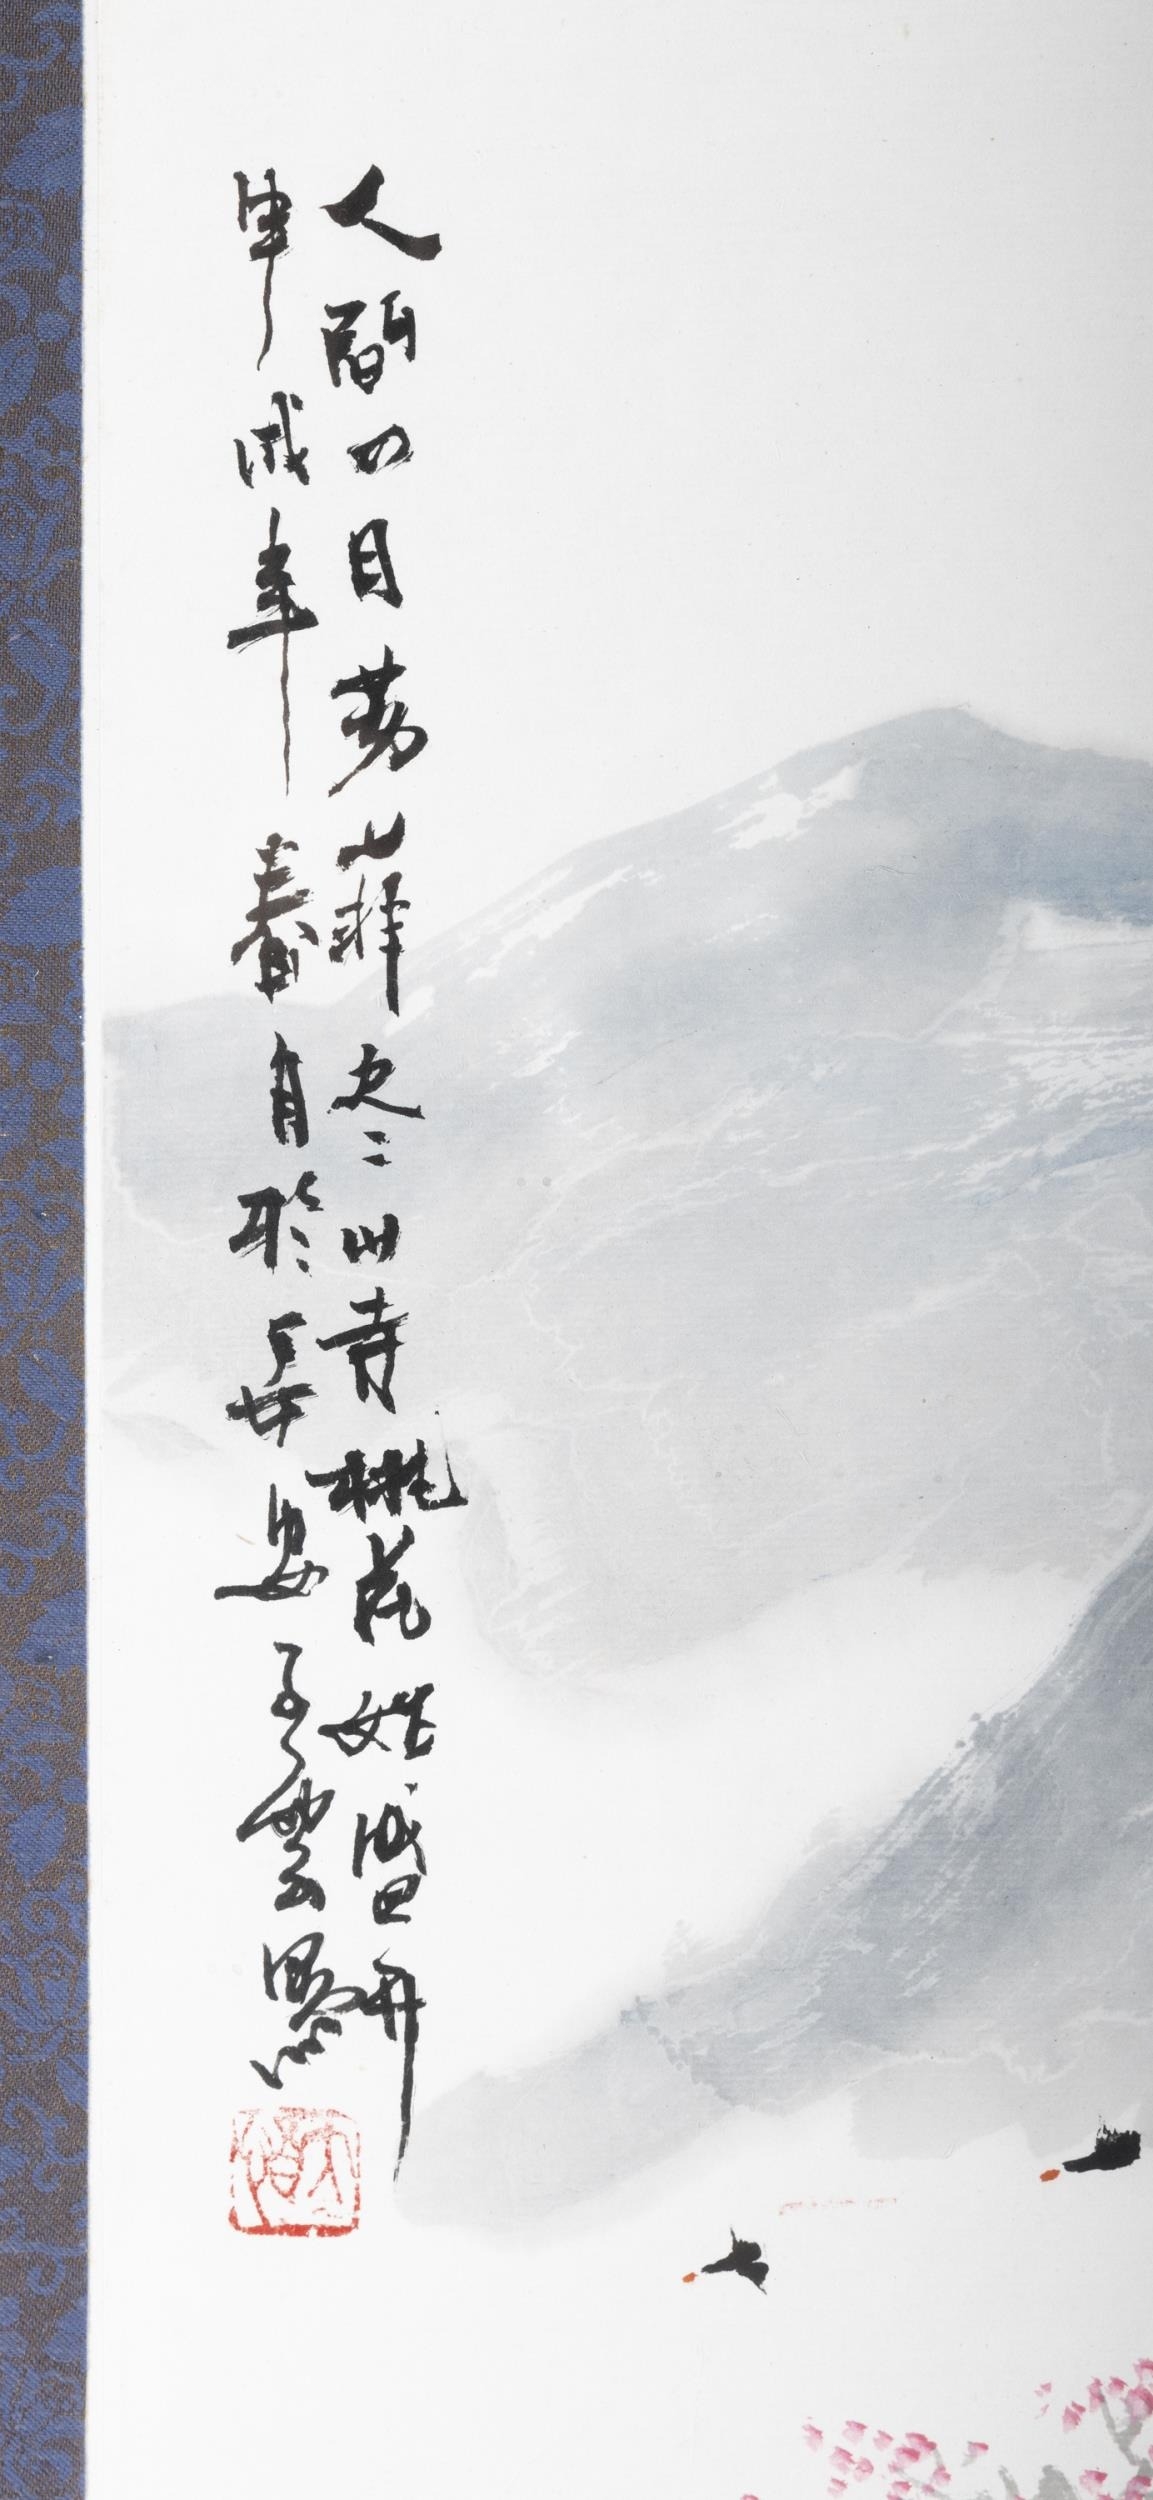 人間四月芳菲尽山寺桃花始盛開
甲戌年春月於長安孟雲